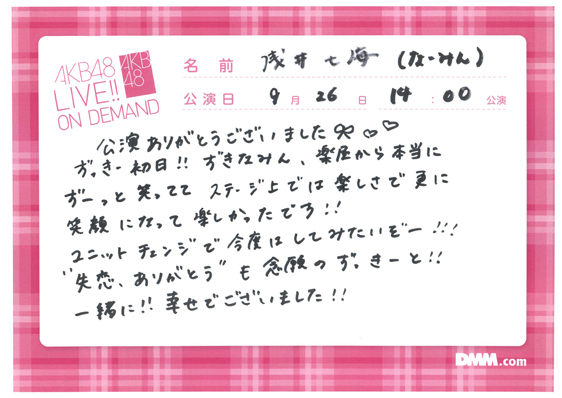 AKB48
LIVE!!
ON DEMAND
AKB
48
名前 浅井七海 (なーみん)
公演日 9月26日 14:00公演
公演ありがとうございました
ずっきー初日!! ずきなみん、楽屋から本当に
ずーっと笑ってて ステージ上では楽しさで更に
笑顔になって楽しかったでろ!!
ユニットチェンジで今度はしてみたいぞー!!!
"失恋、ありがとう"も念願のずっきーと!!
一緒に!! 幸せでございました!!
DMM.com